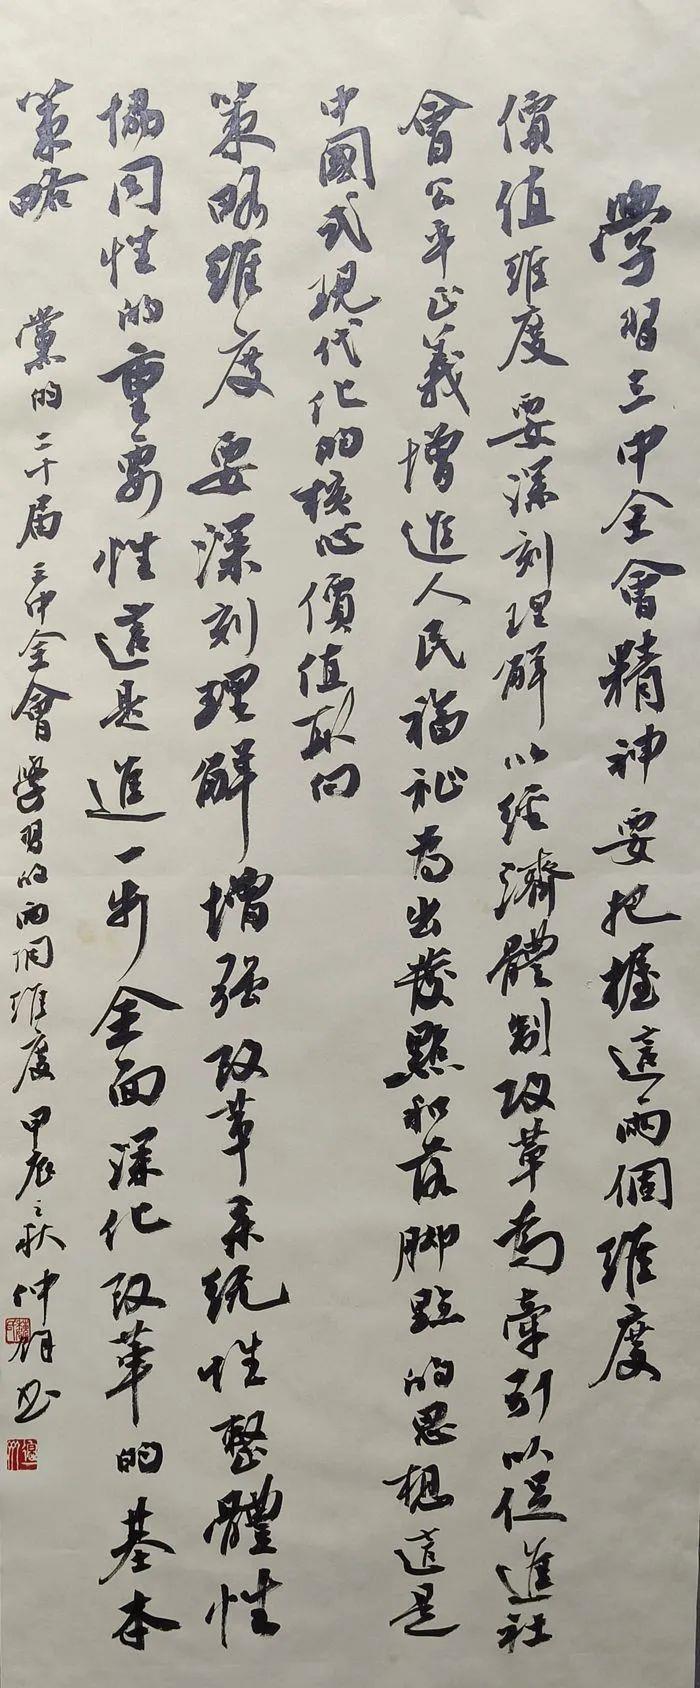 學習三中全會精神要把握這兩個維度
價值維度要深刻理解以經濟體制改革為牽引以促進社
會公平正義增進人民福祉為出發點和落腳點的思想這是
中國式現代化的核心價值取向
策略維度要深刻理解增強改革系統性整體性
協同性的重要性這是進一步全面深化改革的基本
策略
黨的二十屆三中全會學習的兩個維度甲辰之秋仲